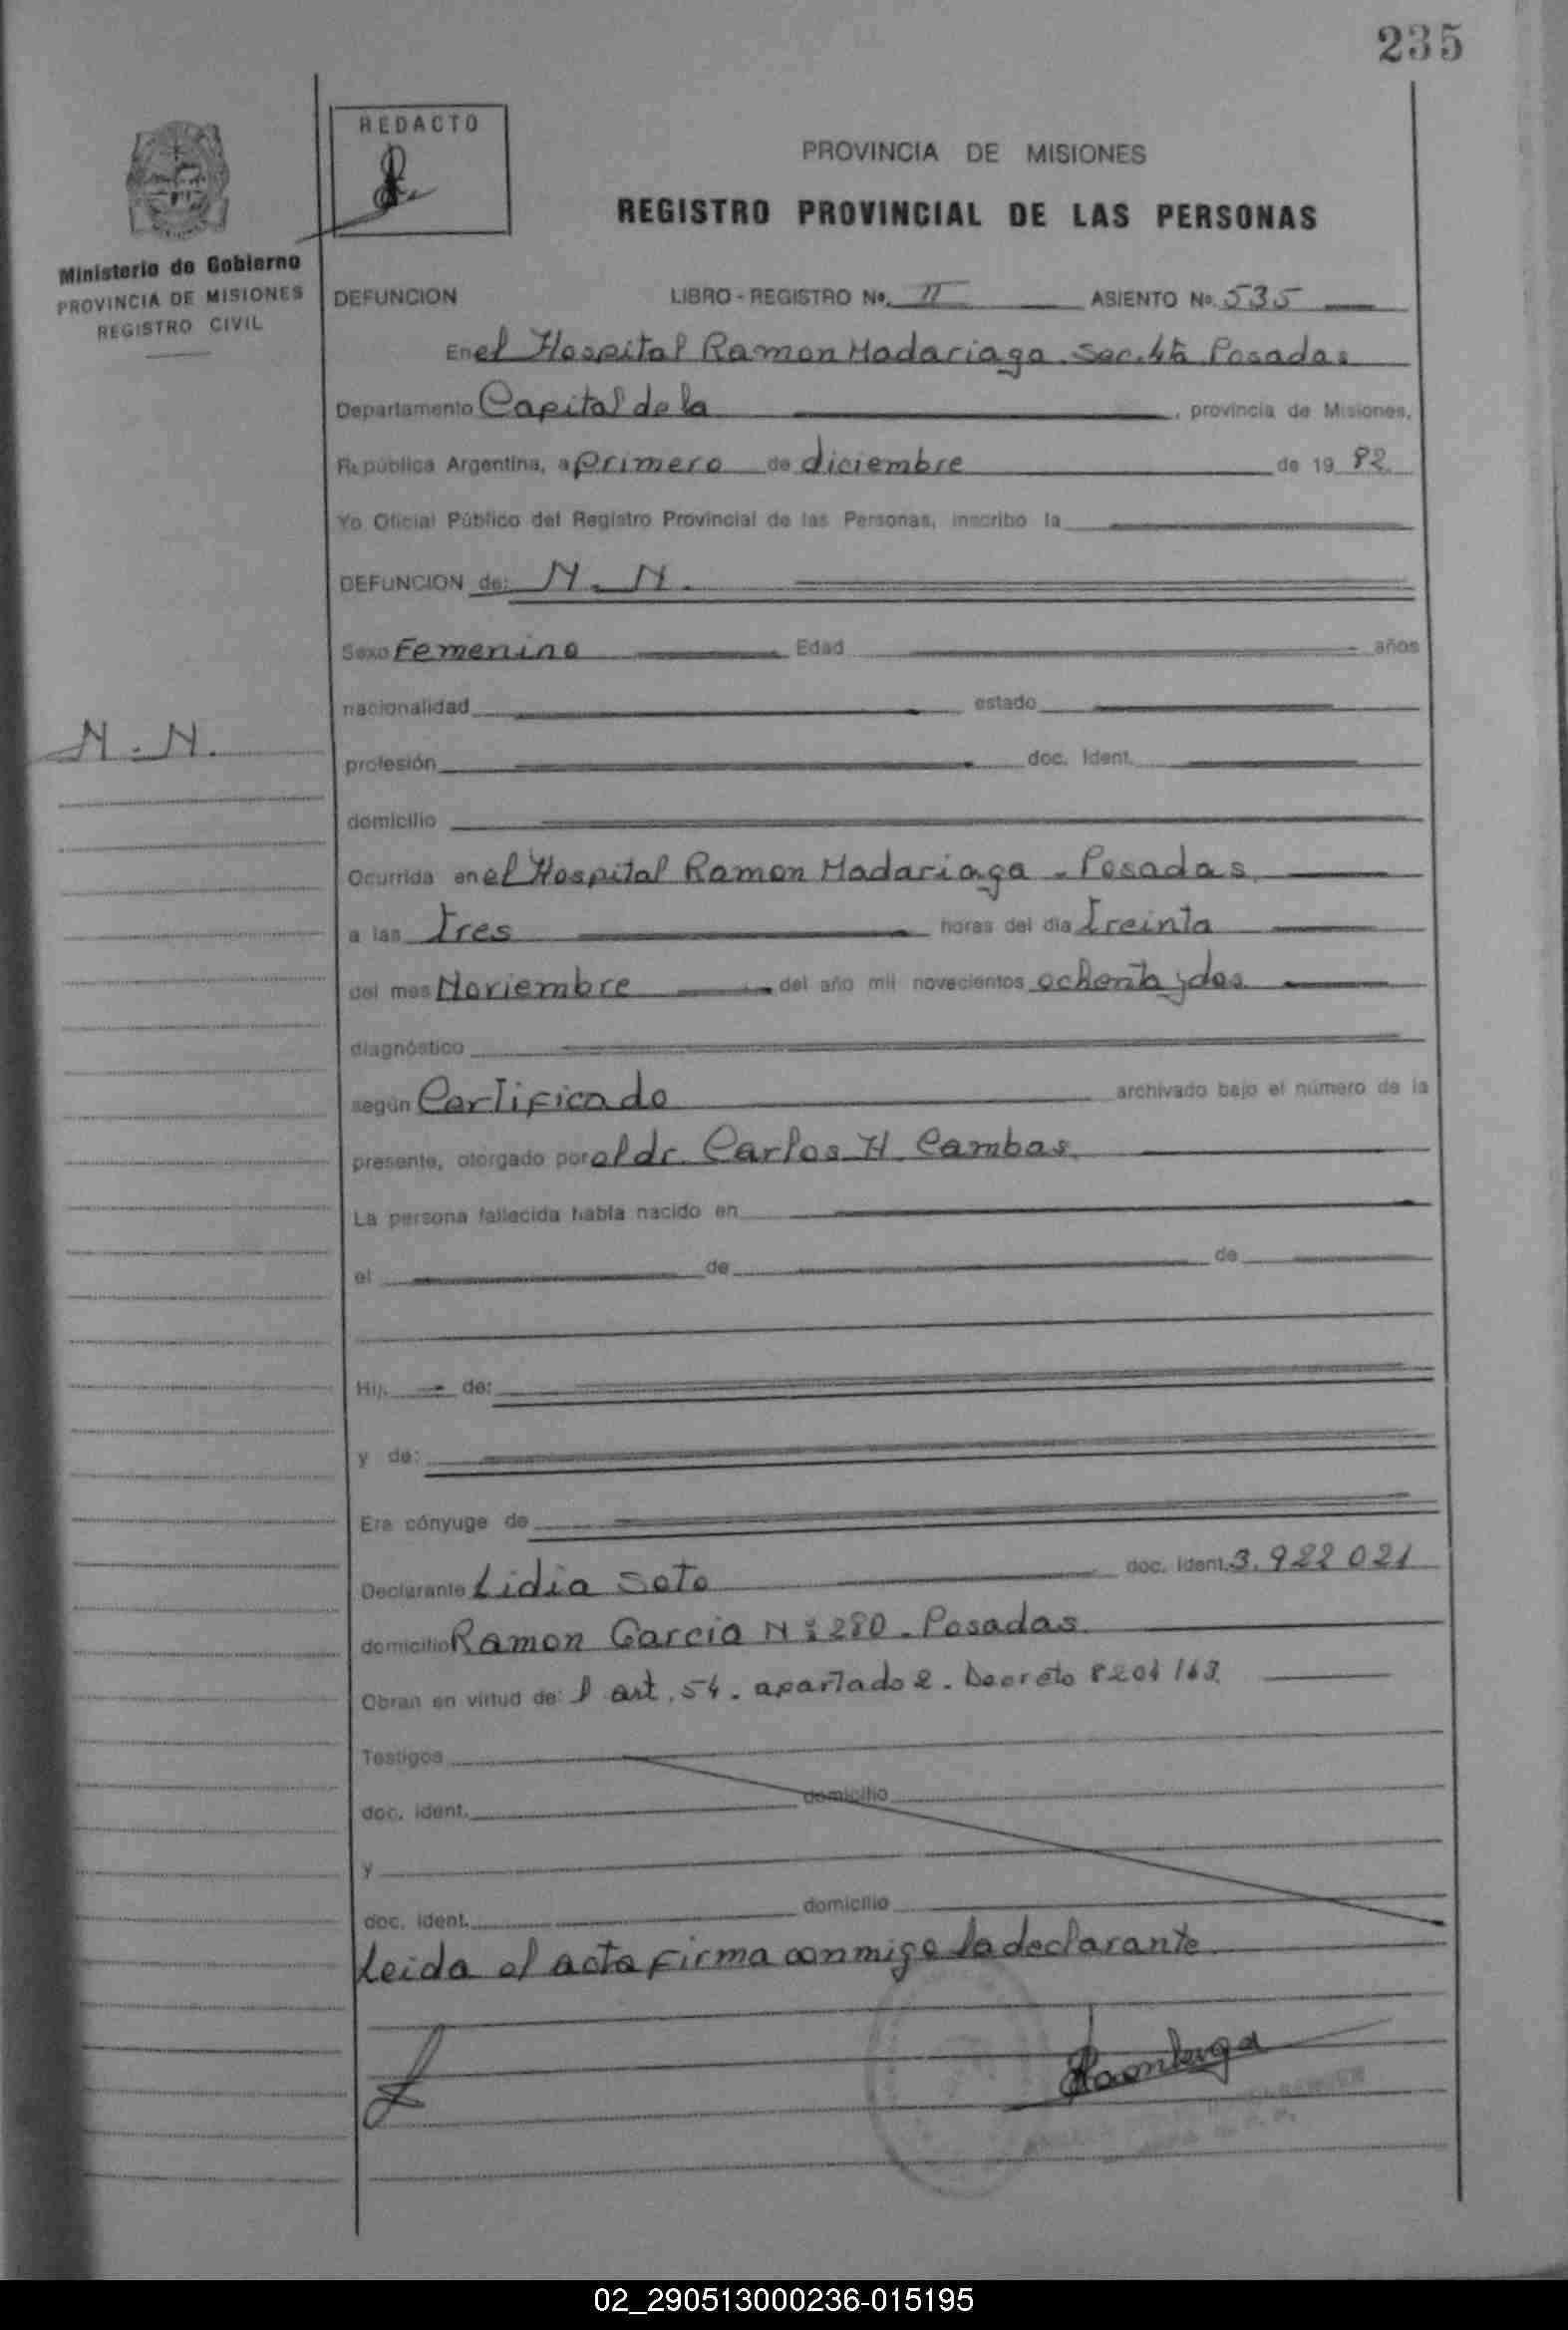 235
REDACTO
PROVINCIA DE MISIONES
REGISTRO PROVINCIAL DE LAS PERSONAS
Ministerio de Gobierno
PROVINCIA DE MISIONES
REGISTRO CIVIL
DEFUNCION LIBRO - REGISTRO No. II ASIENTO No. 535
En el Hospital Ramon Madariaga. Sec. 4ta Posadas
Departamento Capital de la , provincia de Misiones,
República Argentina, a primero de diciembre de 19 82.
Yo Oficial Público del Registro Provincial de las Personas, inscribo la
DEFUNCION de: N. N.
Sexo Femenino Edad años
nacionalidad estado
N. N.
profesión doc. Ident.
domicilio
Ocurrida en el Hospital Ramon Madariaga - Posadas.
a las tres horas del día treinta
del mes Noviembre del año mil novecientos ochenta y dos
diagnóstico
según Certificado archivado bajo el número de la
presente, otorgado por el dr. Carlos H. Cambas.
La persona fallecida había nacido en
el de de
Hij. de:
y de:
Era cónyuge de
Declarante Lidia Soto doc. Ident. 3.922 021
domicilio Ramon Garcia Nº 280 - Posadas
Obran en virtud de: l art. 54. apartado 2. Decreto 8204/63.
Testigos
doc. ident. domicilio
y
doc. ident. domicilio
Leida el acta firma conmigo la declarante.
02_290513000236-015195